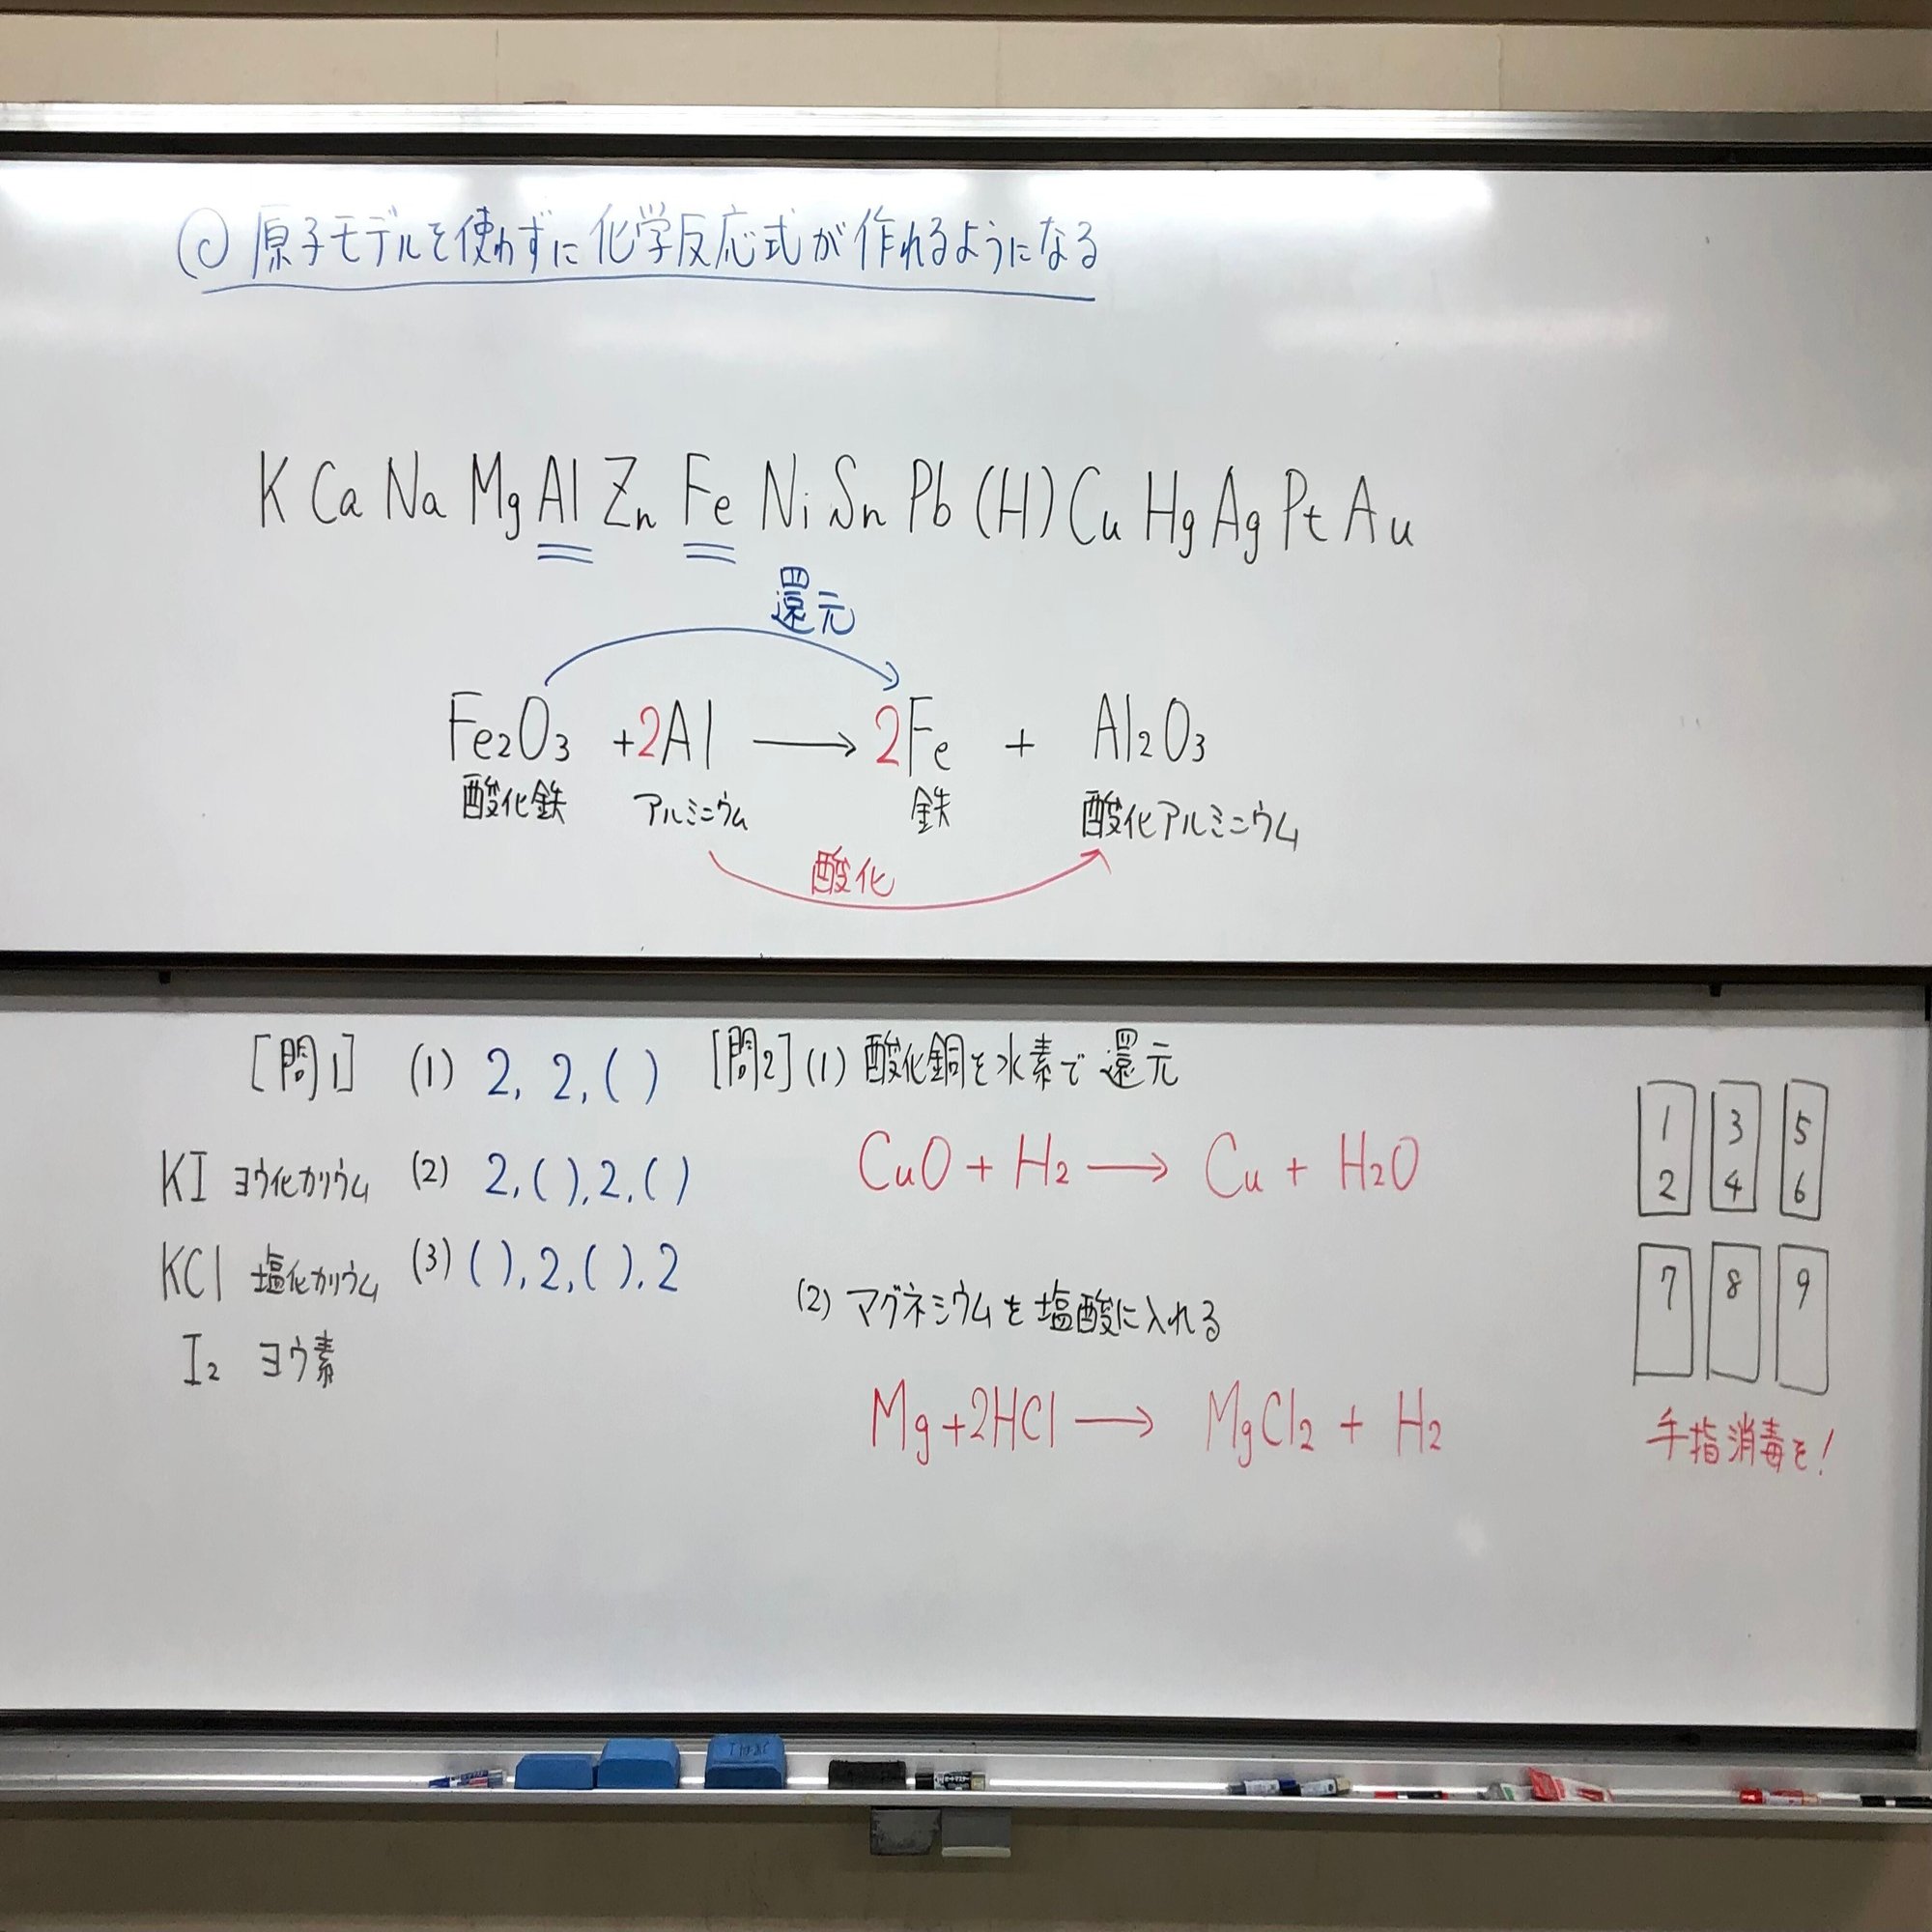 ◎原子モデルを使わずに化学反応式が作れるようになる
K Ca Na Mg Al Zn Fe Ni Sn Pb (H) Cu Hg Ag Pt Au
還元
Fe2O3 +2Al → 2Fe + Al2O3
酸化鉄 アルミニウム 鉄 酸化アルミニウム
酸化
[問1] (1) 2, 2, ( )
KI ヨウ化カリウム (2) 2, ( ), 2, ( )
KCl 塩化カリウム (3) ( ), 2, ( ), 2
I2 ヨウ素
[問2] (1) 酸化銅を水素で還元
CuO + H2 → Cu + H2O
(2) マグネシウムを塩酸に入れる
Mg+2HCl → MgCl2 + H2
1 3 5
2 4 6
7 8 9
手指消毒を!